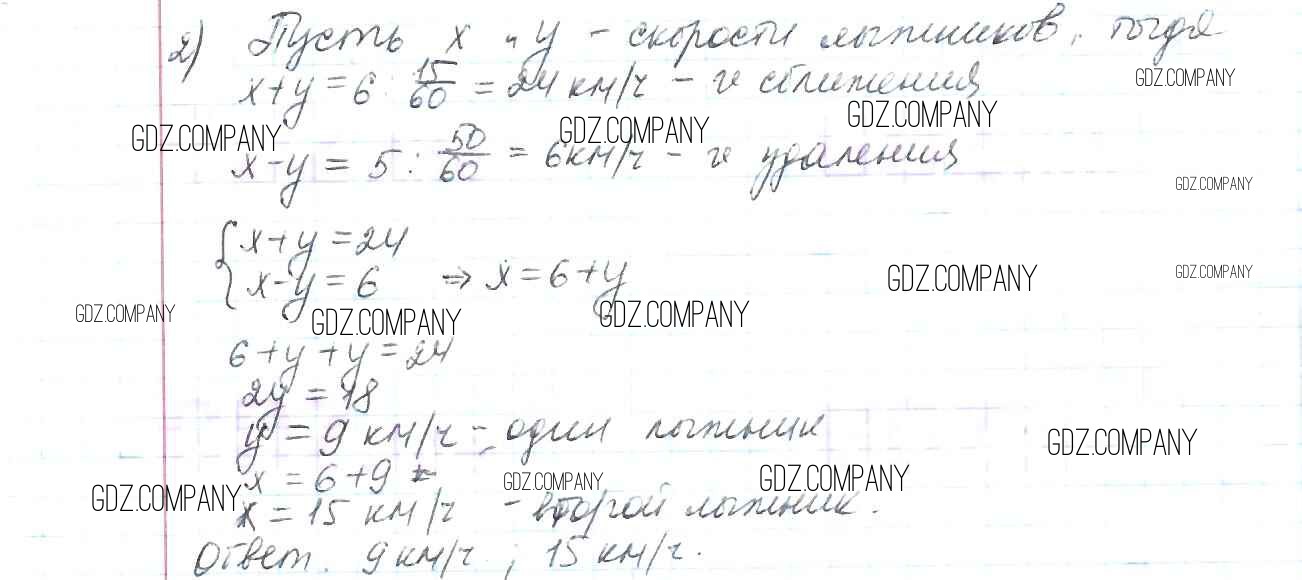 2) Пусть x и y – скорости лыжников, тогда
x+y = 6 : 15/60 = 24 км/ч – v сближения
x-y = 5 : 50/60 = 6 км/ч – v удаления
{ x+y = 24
x-y = 6 ⇒ x = 6+y
6+y+y = 24
2y = 18
y = 9 км/ч – один лыжник
x = 6+9
x = 15 км/ч – второй лыжник.
Ответ. 9 км/ч ; 15 км/ч.
GDZ.COMPANY
GDZ.COMPANY
GDZ.COMPANY
GDZ.COMPANY
GDZ.COMPANY
GDZ.COMPANY
GDZ.COMPANY
GDZ.COMPANY
GDZ.COMPANY
GDZ.COMPANY
GDZ.COMPANY
GDZ.COMPANY
GDZ.COMPANY
GDZ.COMPANY